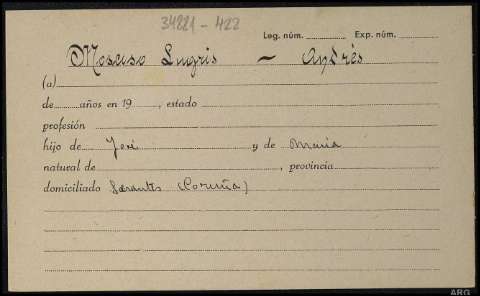 34221 - 422
Leg. núm. Exp. núm.
Moscoso Lugris ~ Andrés
(a)
de años en 19 , estado
profesión
hijo de José y de María
natural de , provincia
domiciliado Sarantes (Coruña)
ARG